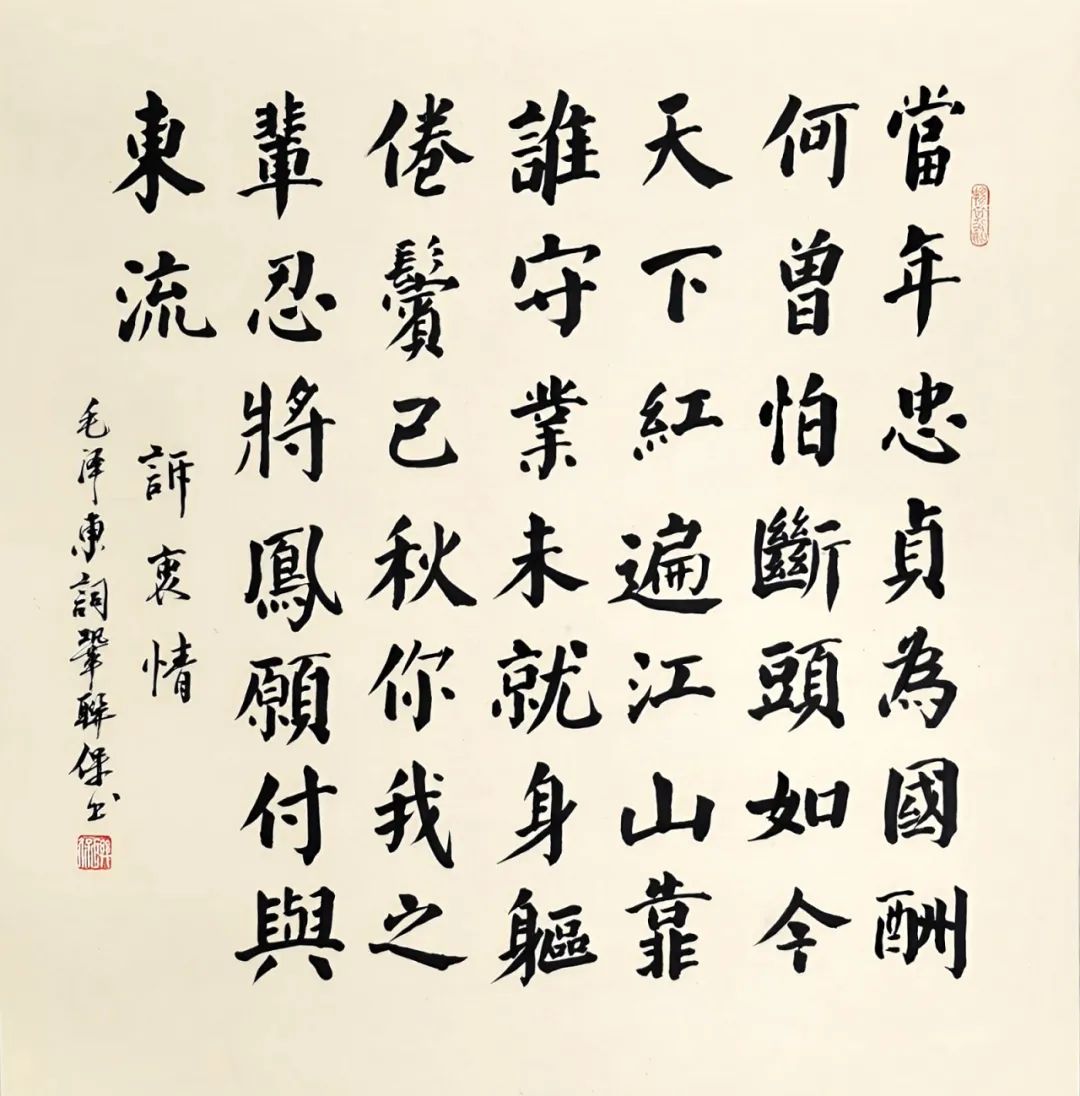 當年忠貞為國酬
何曾怕斷頭如今
天下紅遍江山靠
誰守業未就身軀
倦鬢已秋你我之
輩忍將鳳願付與
東流
訴衷情
毛泽東詞鞏聯保书